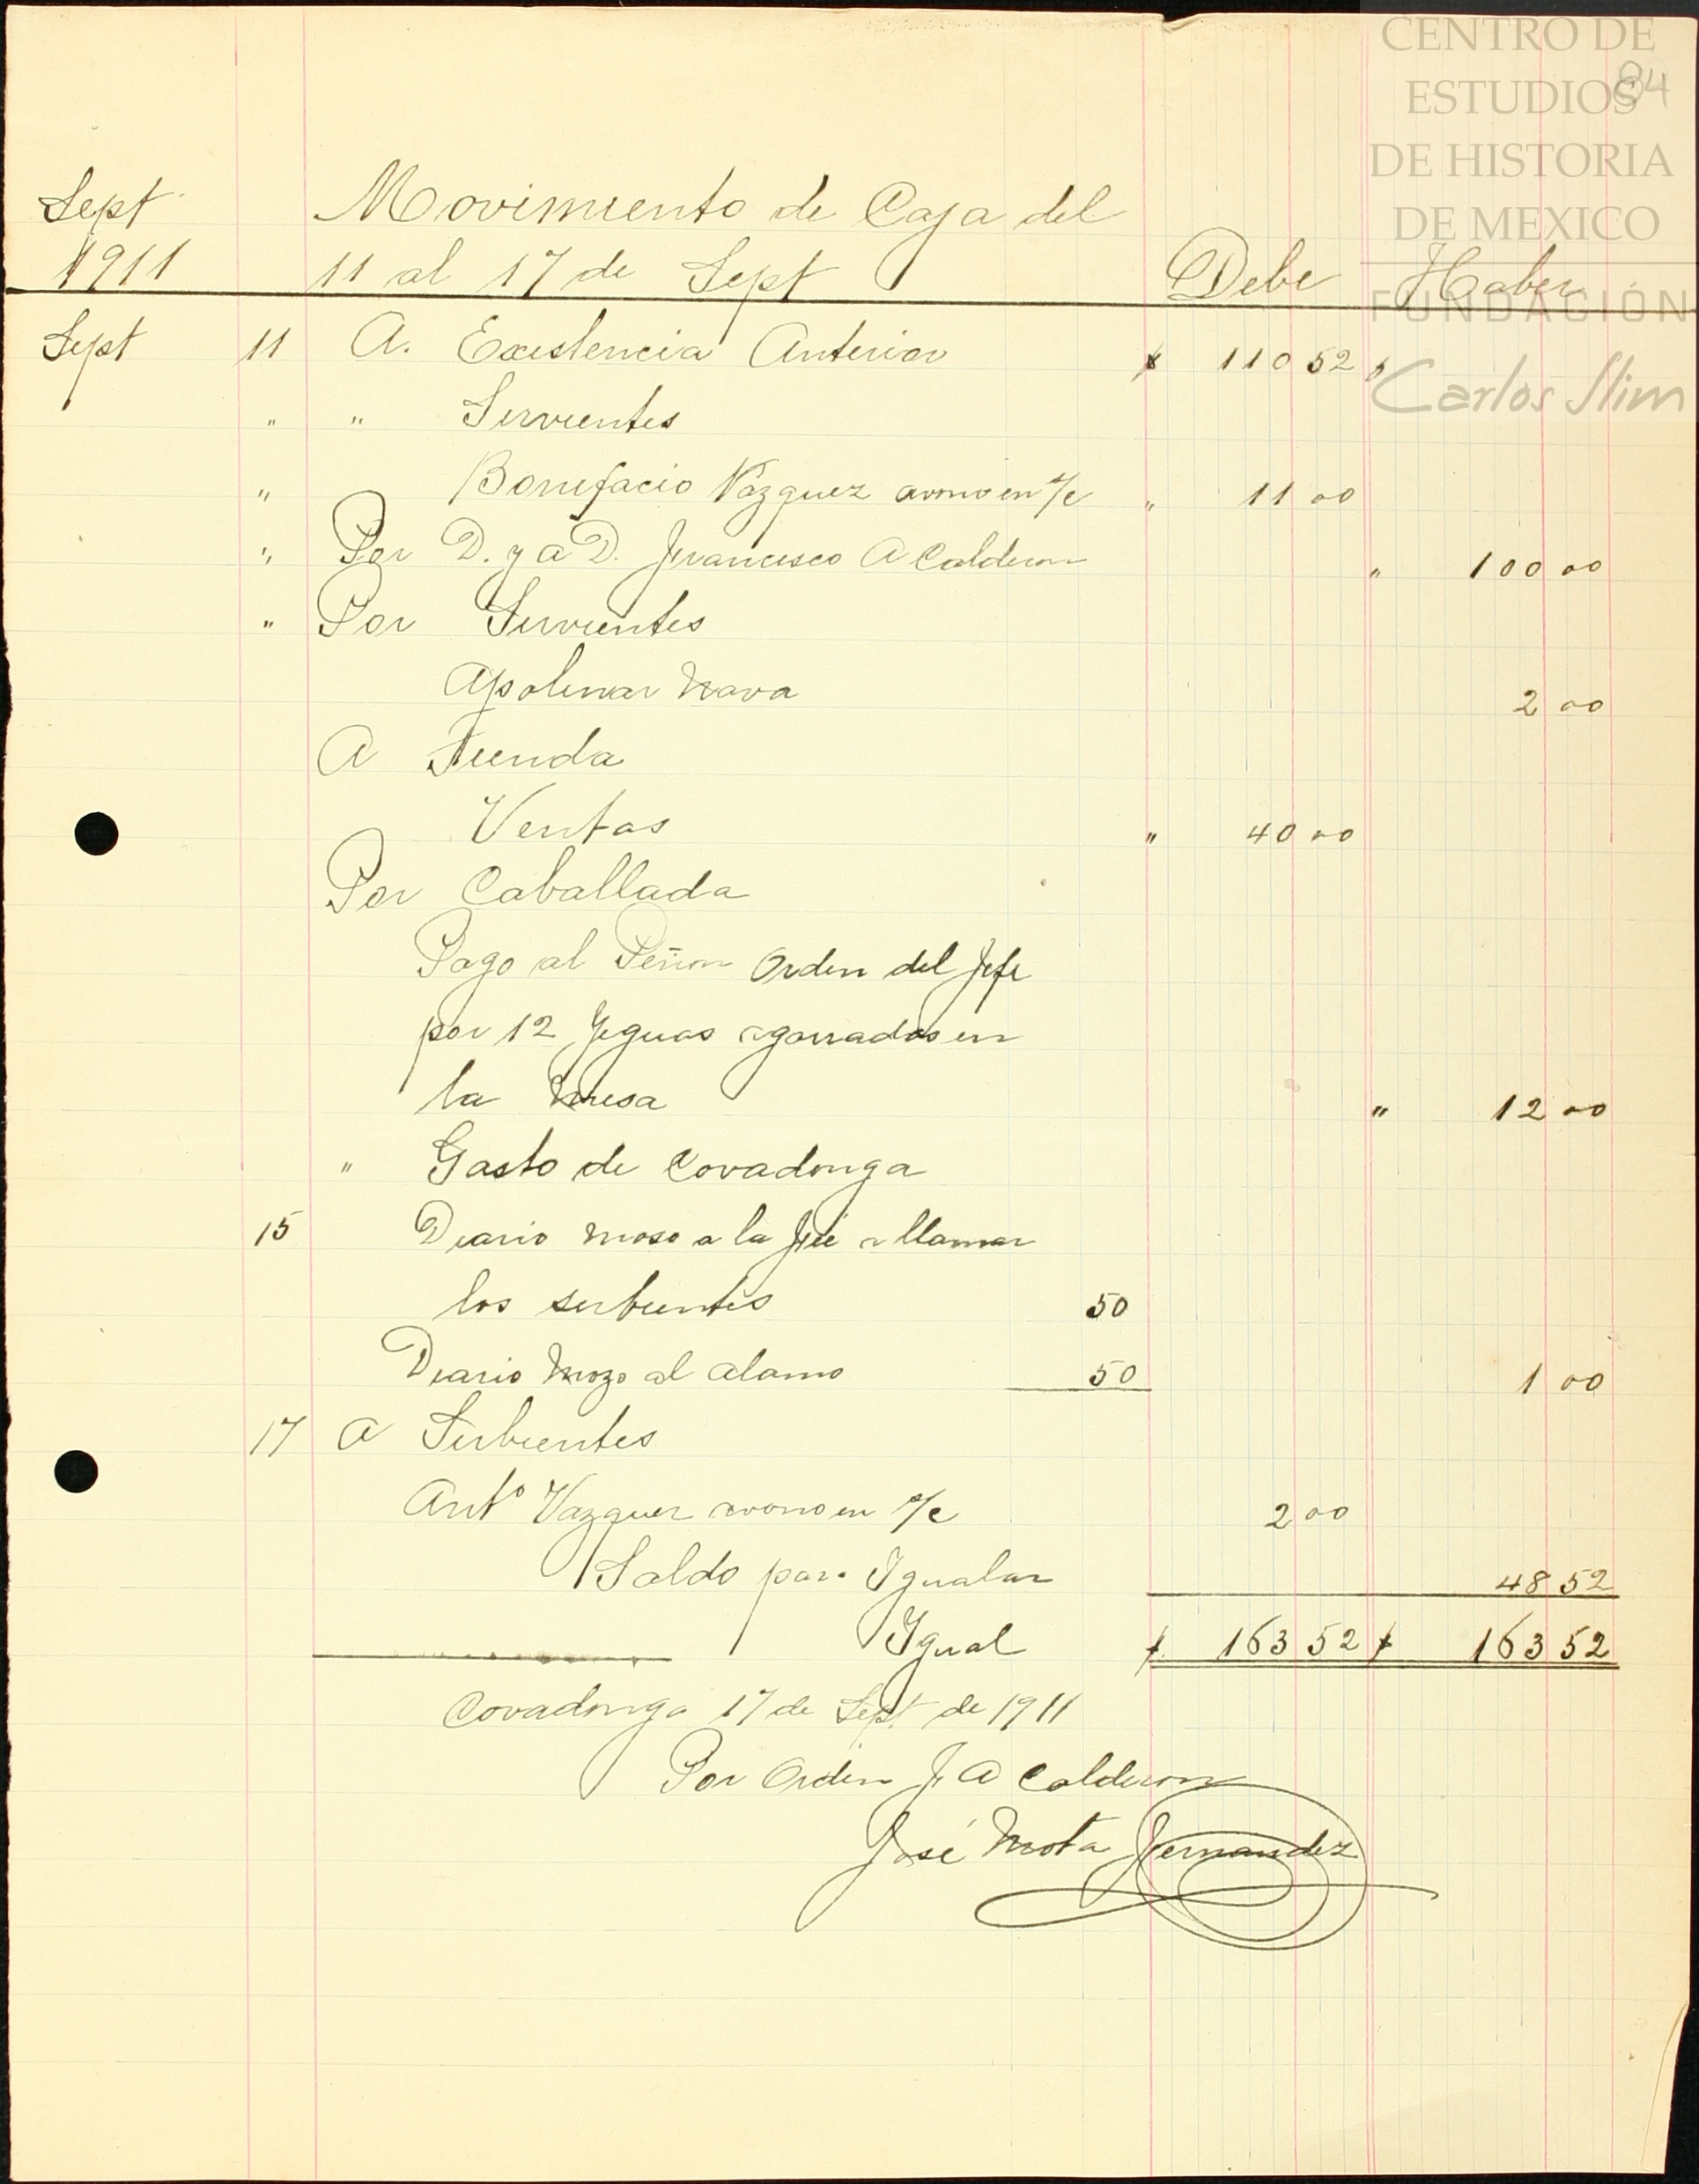 CENTRO DE
ESTUDIOS
84
DE HISTORIA
DE MEXICO
FUNDACIÓN
Carlos Slim
Sept Movimiento de Caja del
1911 11 al 17 de Sept Debe Haber
Sept 11 A. Existencia Anterior $ 110 52 $
" " Sirvientes
" Bonifacio Vázquez avono en s/c " 11 00
" Por D. y a D. Francisco A Calderon " 100 00
" Por Sirvientes
Apolinar Nava 2 00
A Tienda
Ventas " 40 00
Por Caballada
Pago al Peñon Orden del Jefe
por 12 Yeguas agarradas en
la Mesa " 12 00
" Gasto de Covadonga
15 Diario moso a la fué a llamar
los serbientes 50
Diario Mozo al alamo 50 1 00
17 A Sirbientes
Antº Vazquez avono en s/c 2 00
Saldo para Igualar 48 52
Igual $ 163 52 $ 163 52
Covadonga 17 de Sept de 1911
Por Orden F. A Calderon
José Mota Hernandez